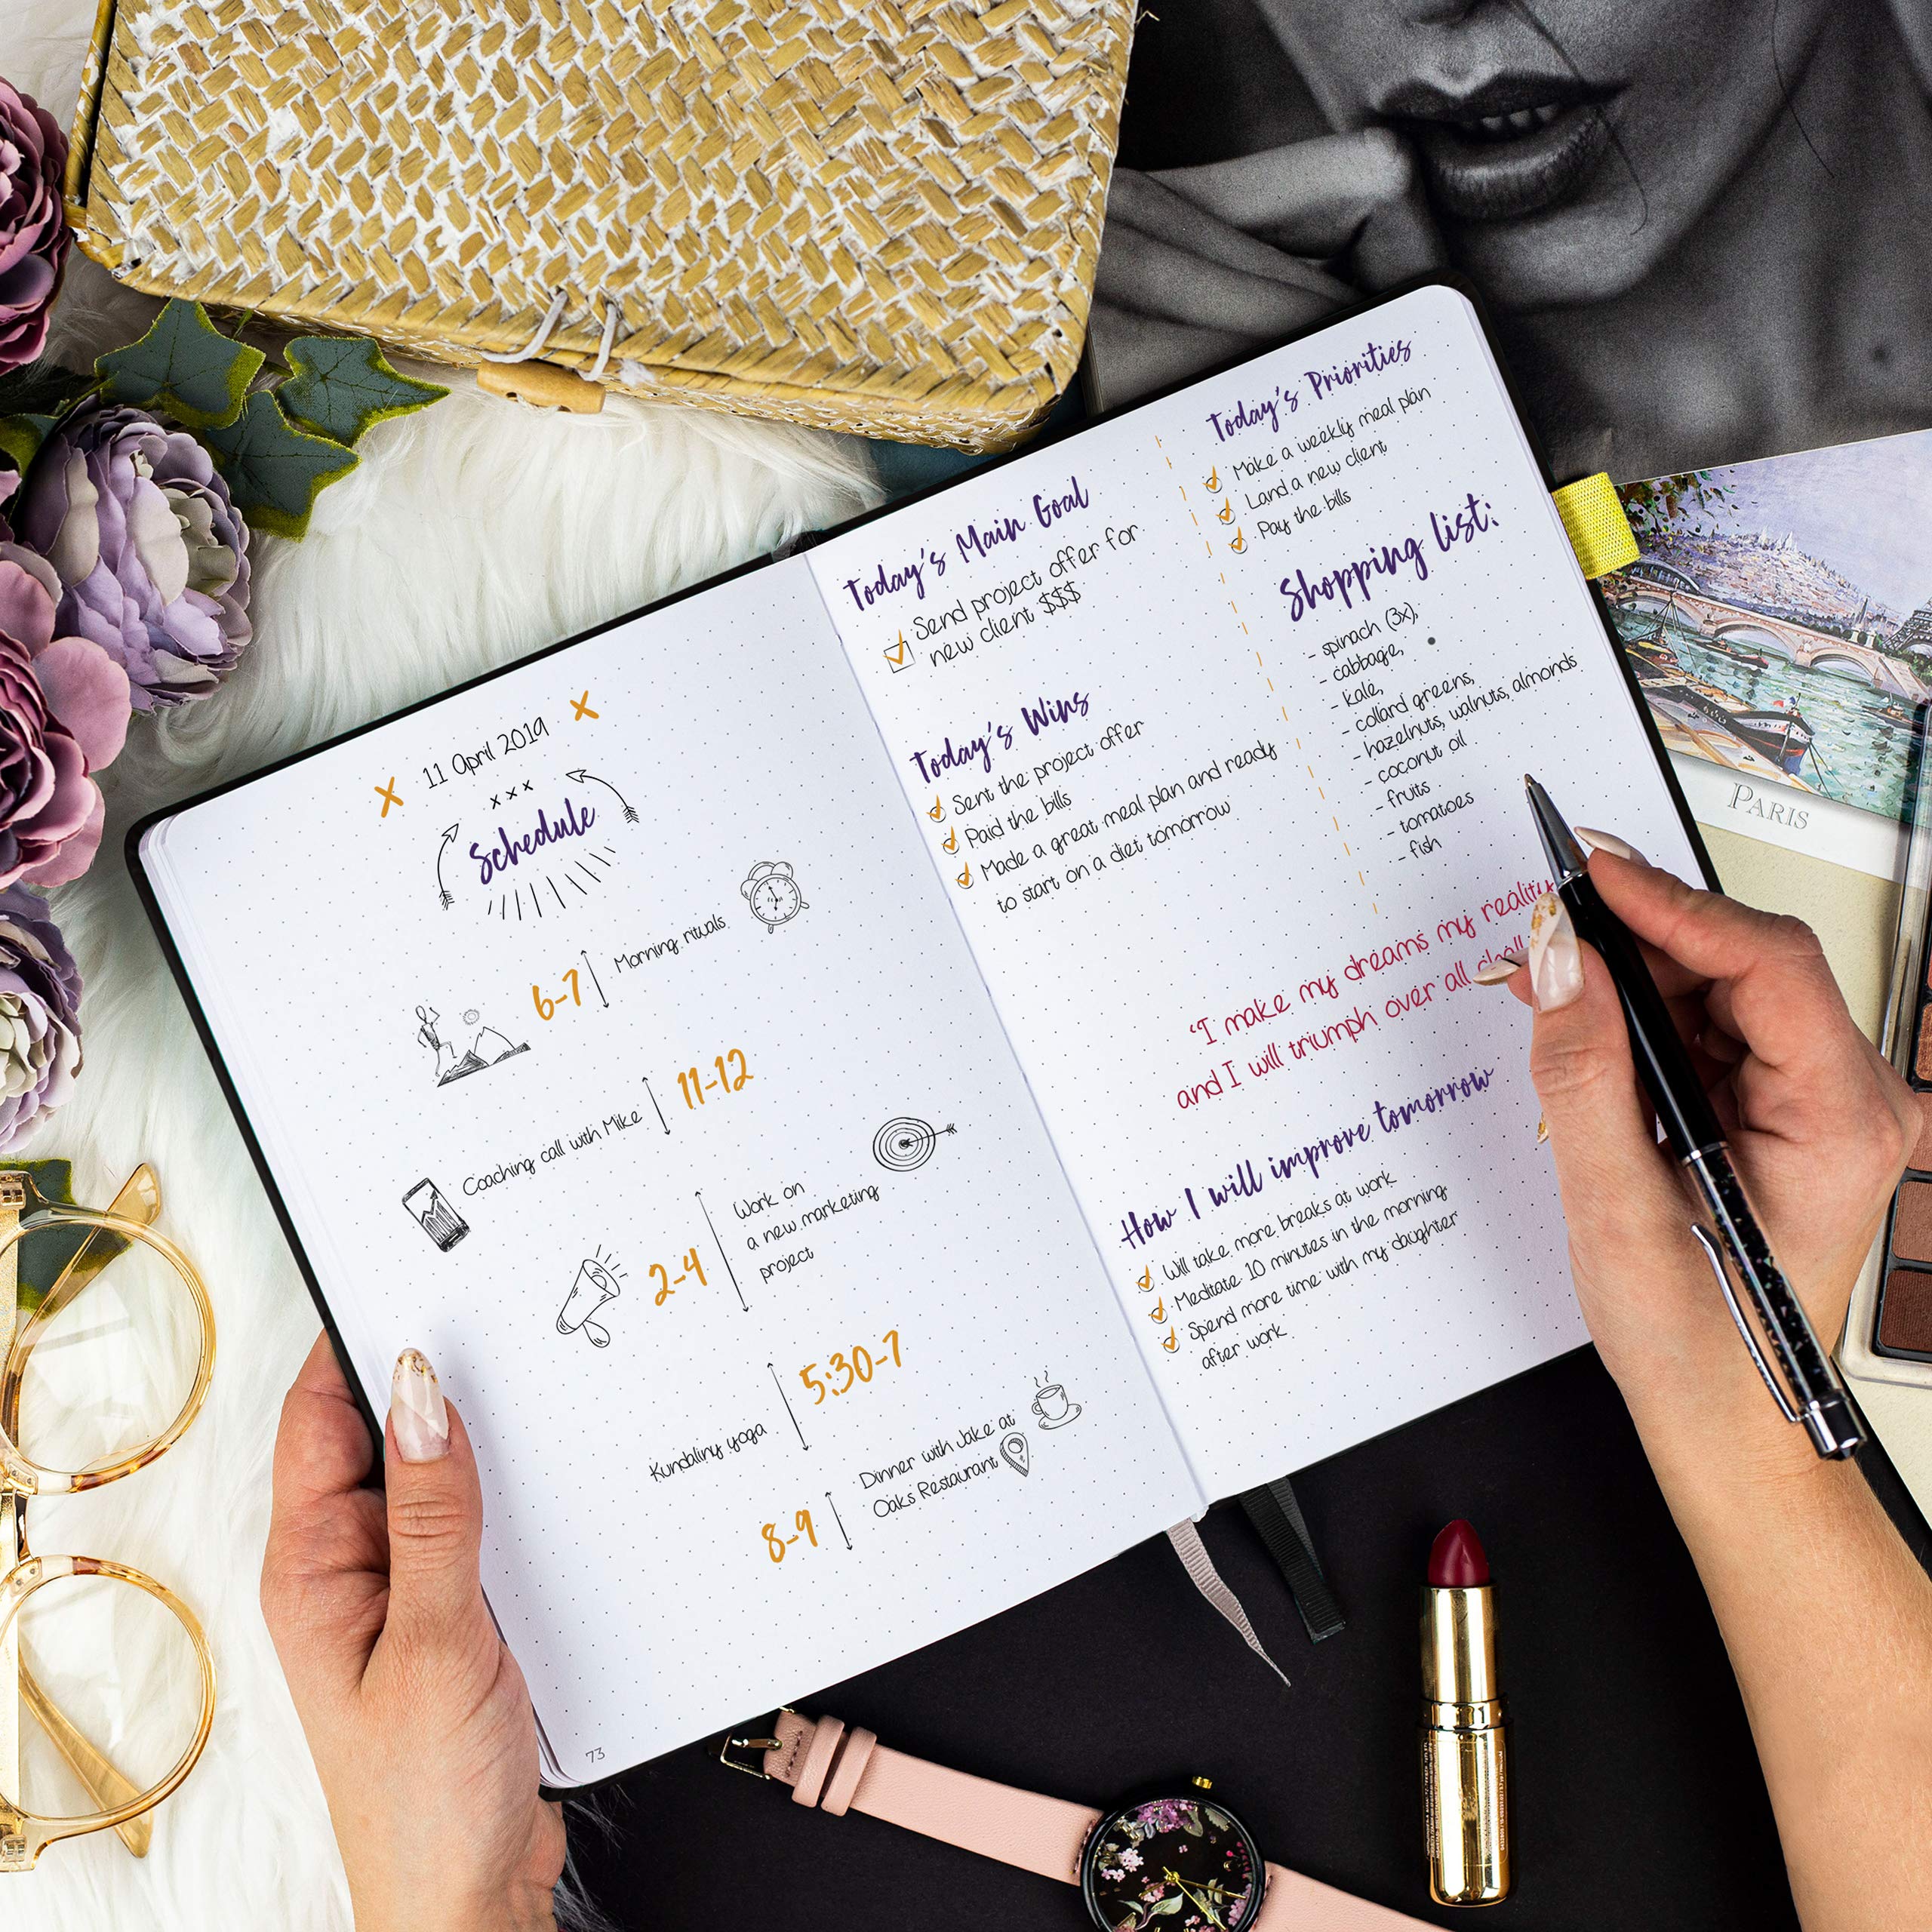 11 April 2019
x x x
Schedule
6-7
Morning rituals
Coaching call with Mike
11-12
2-4
Work on
a new marketing
project
Kundaliny yoga
5:30-7
8-9
Dinner with Jake at
Oaks Restaurant
73
Today's Main Goal
Send project offer for
new client $$$
Today's Wins
Sent the project offer
Paid the bills
Made a great meal plan and ready
to start on a diet tomorrow
Today's Priorities
Make a weekly meal plan
Land a new client
Pay the bills
Shopping list:
- spinach (3x),
- cabbage,
- kale,
- collard greens,
- hazelnuts, walnuts, almonds
- coconut oil
- fruits
- tomatoes
- fish
"I make my dreams my reality
and I will triumph over all
How I will improve tomorrow
Will take more breaks at work
Meditate 10 minutes in the morning
Spend more time with my daughter
after work
PARIS